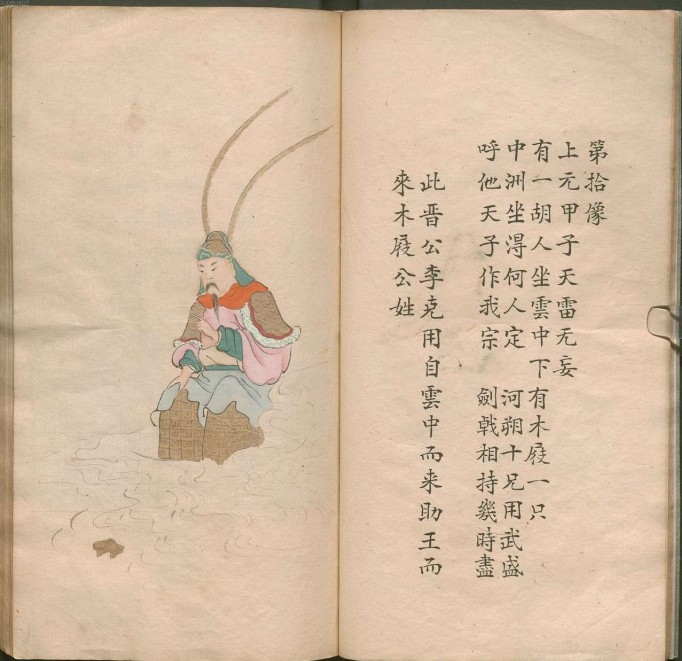 第拾像
上元甲子天雷无妄
有一胡人坐雲中下有木屐一只
中洲坐淂何人定　河朔十兄用武盛
呼他天子作我宗　劍戟相持㡬時盡
此晋公李克用自雲中而来助王而
來木屐公姓